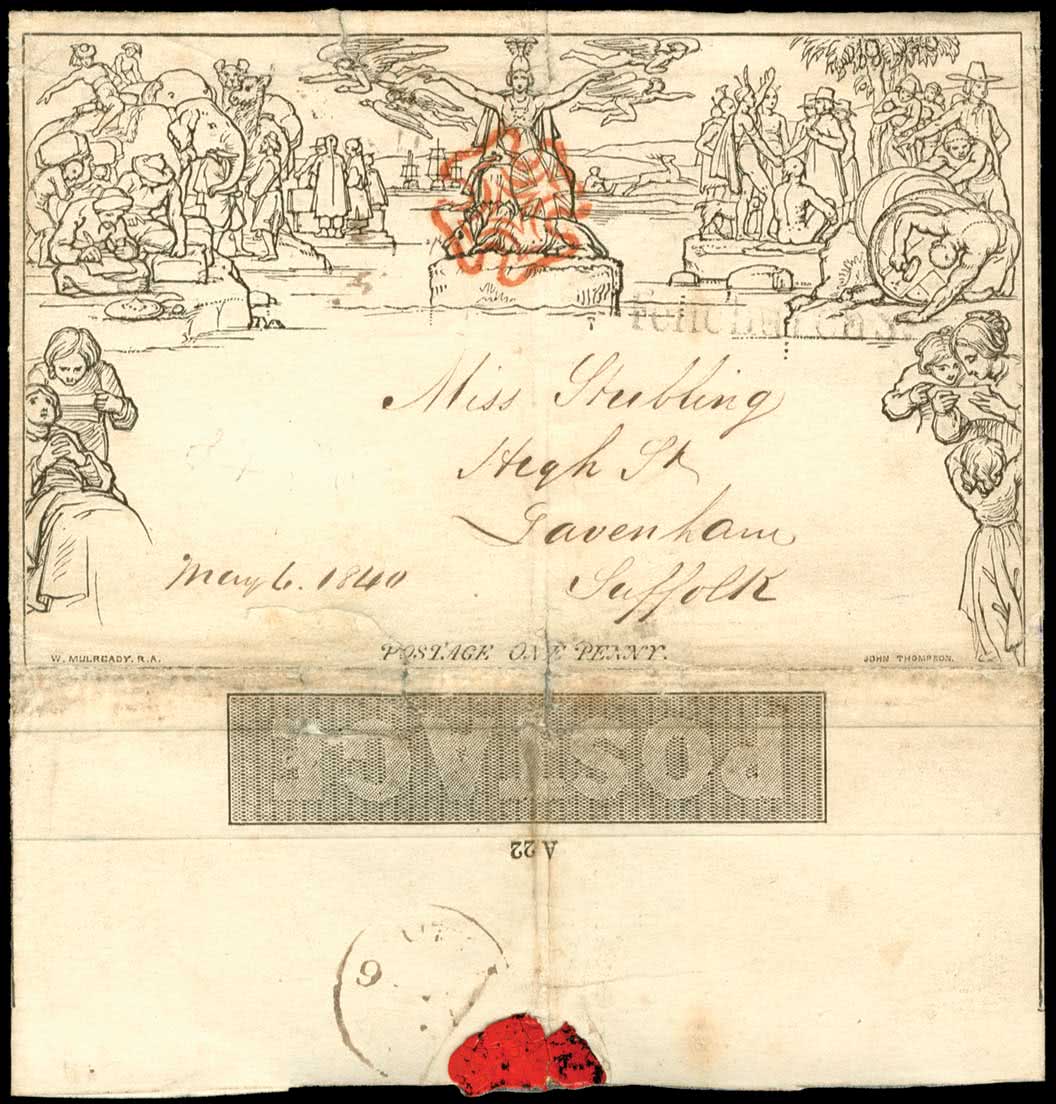 Miss Stubbing
High St
Lavenham
May 6. 1840
Suffolk
W. MULREADY. R.A.
POSTAGE ONE PENNY.
JOHN THOMPSON.
POSTAGE
A 22